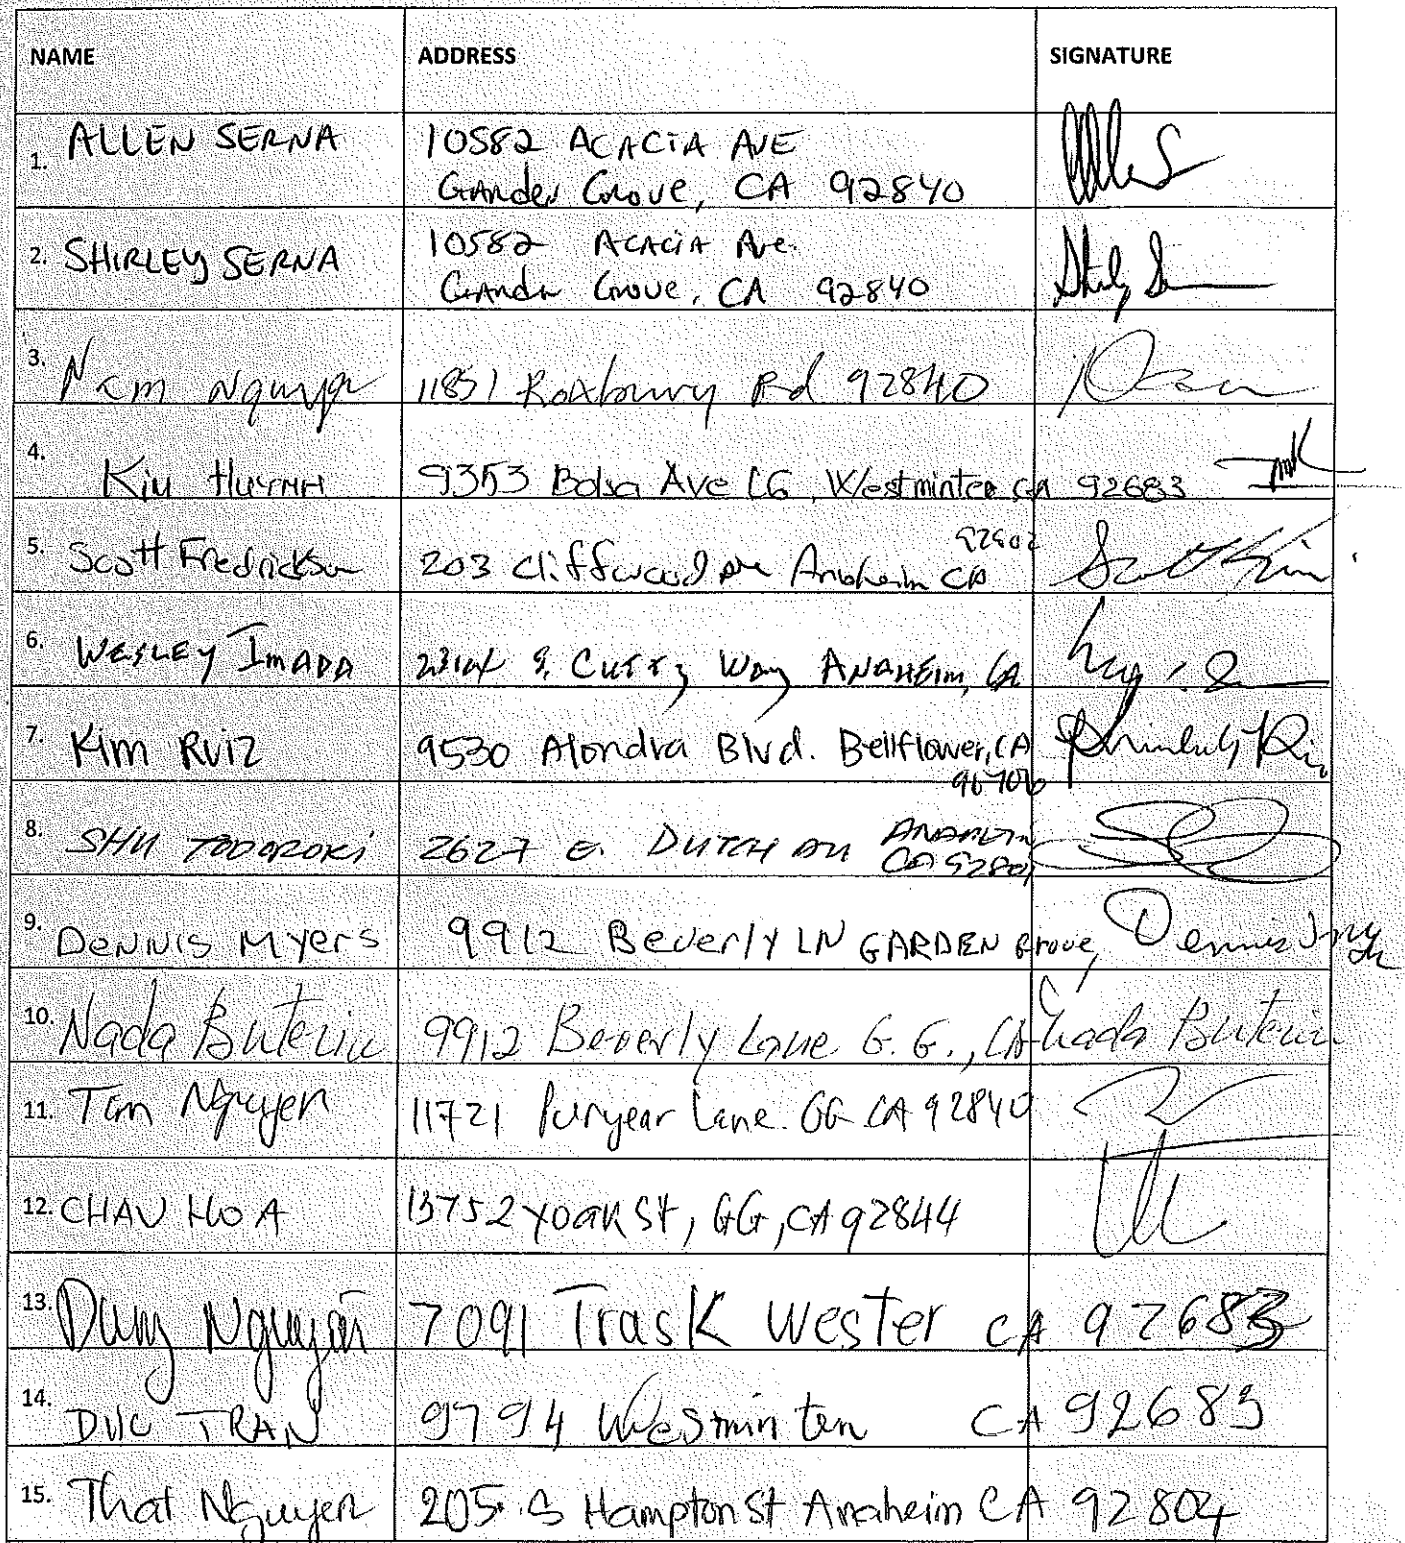 NAME ADDRESS SIGNATURE
1. ALLEN SERNA 10582 ACACIA AVE
Garden Grove, CA 92840
2. SHIRLEY SERNA 10582 ACACIA Ave.
Garden Grove, CA 92840
3. Nam Nguyen 11851 Roxbury Rd 92840
4. Kim Huynh 9353 Bolsa Ave Westminter CA 92683
5. Scott Fredrickson 203 Cliffwood Ave Anaheim CA
92802
6. WESLEY IMADA Way ANAHEIM, CA
7. Kim Ruiz 9530 Alondra Blvd. Bellflower, CA
8. SHU TODOROKI 2627 E. DUTCH AV ANAHEIM
CA
9. DENNIS Myers 9912 Beverly LN GARDEN Grove,
10. Nada Buterin 9912 Beverly Lane G.G., CA Nada Buterin
11. Tam Nguyen 11721 Puryear Lane. GG CA 92840
12. CHAU HOA 13752 YOAK St, GG, CA 92844
13. Dung Nguyen 7091 Trask Wester CA 92683
14. DUC TRAN 9794 Wesminten CA 92683
15. That Nguyen 205 S Hampton St Anaheim CA 92804